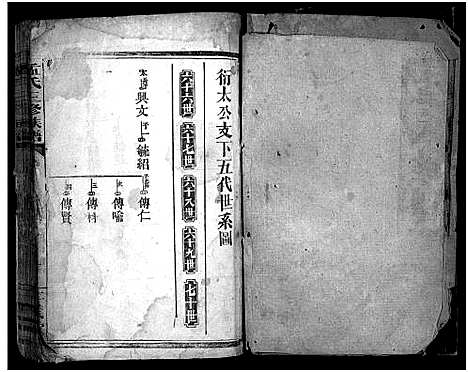 衍太公支下五代世系圖
六十六世 六十七世 六十八世 六十九世 七十世
興文 毓紹 傳仁
傳喻
傳材
傳賢
孟氏三修族譜